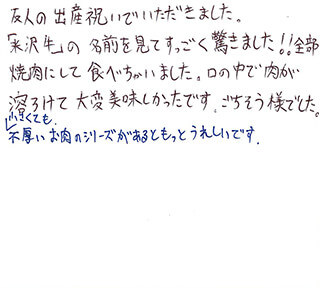 友人の出産祝いでいただきました。
「米沢牛」の名前を見てすっごく驚きました!!全部
焼肉にして食べちゃいました。口の中で肉が
溶ろけて大変美味しかったです。ごちそう様でした。
小さくても、
厚いお肉のシリーズがあるともっとうれしいです.